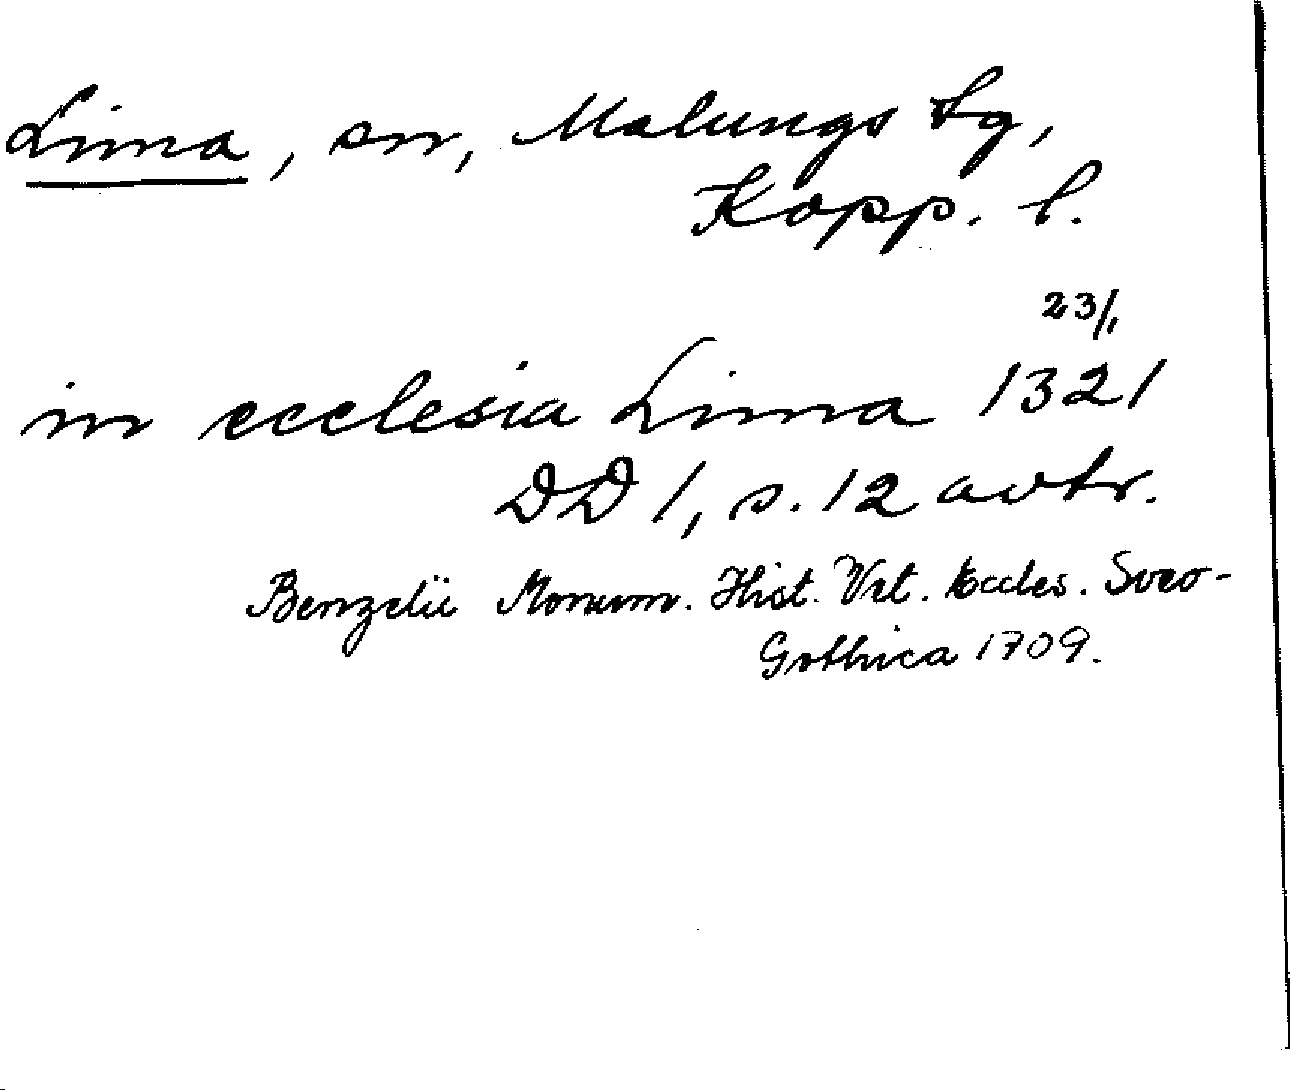 Lima, sn, Malungs tg,
Kopp. l.
23/1
in ecclesia Lima 1321
DD 1, s. 12 avtr.
Benzelii Monum. Hist. Vet. Eccles. Sveo-
Gothica 1709.